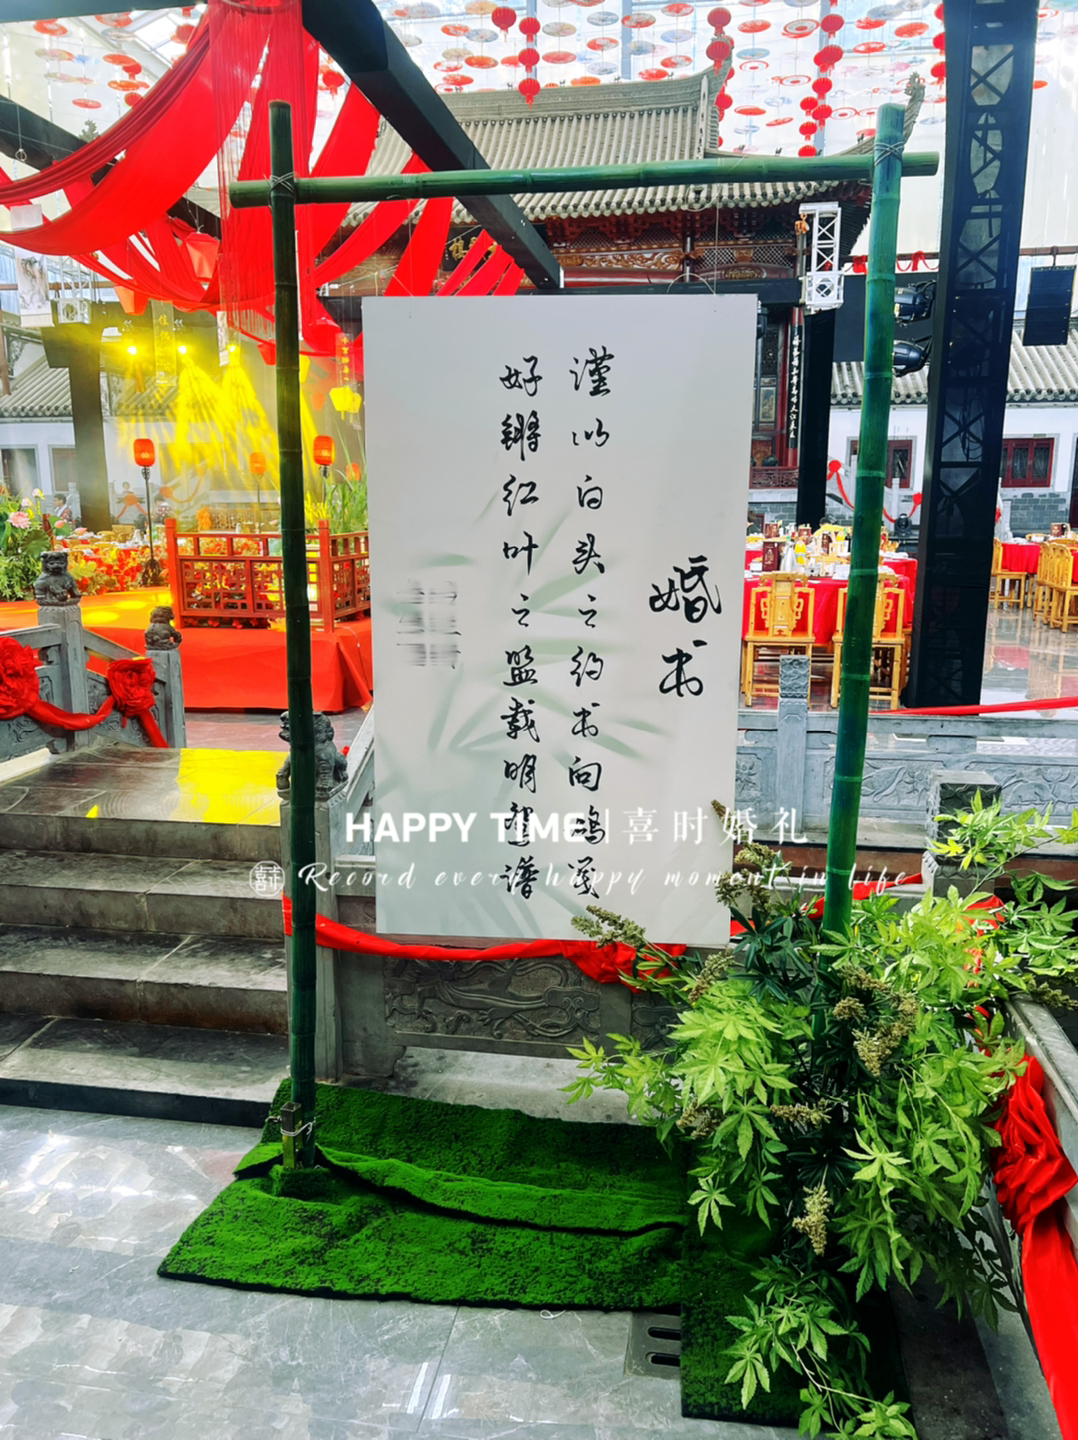 婚书
谨以白头之约书向鸿笺
好锵红叶之盟载明鸳谱
HAPPY TIME|喜时婚礼
Record every happy moment in life